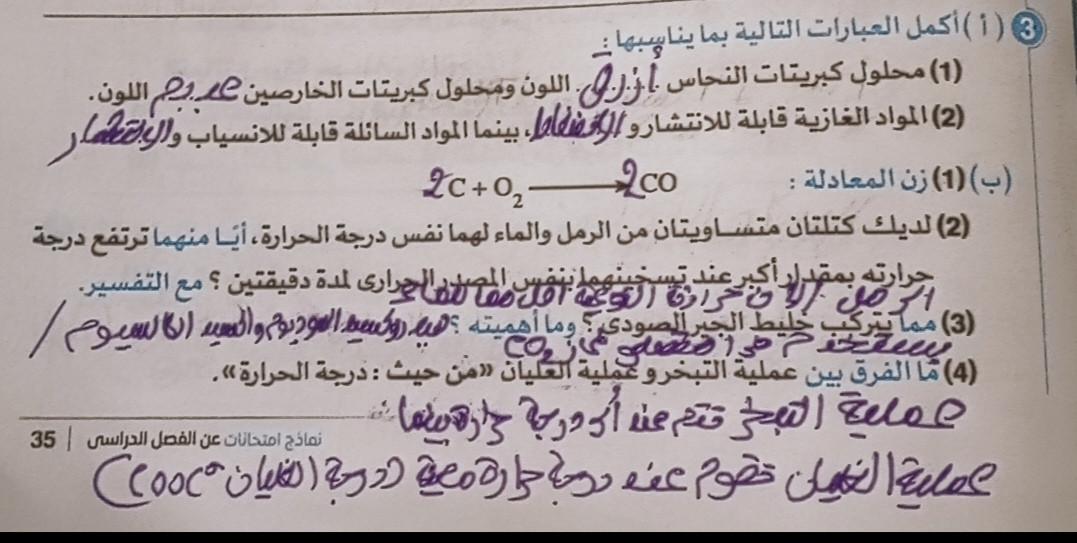 3 (أ) أكمل العبارات التالية بما يناسبها :
(1) محلول كبريتات النحاس أزرق اللون ومحلول كبريتات الخارصين عديم اللون.
(2) المواد الغازية قابلة للانتشار و الانضغاط، بينما المواد السائلة قابلة للانسياب و
(ب) (1) زن المعادلة : 2C + O₂ → 2CO
(2) لديك كتلتان متساويتان من الرمل والماء لهما نفس درجة الحرارة، أيًا منهما ترتفع درجة
حرارته بمقدار أكبر عند تسخينهما بنفس المصدر الحرارى لمدة دقيقتين ؟ مع التفسير.
الرمل / لأن حرارة النوعية أقل مما للماء
(3) مما يتركب خليط الجير الصودى ؟ وما أهميته ؟ هيدروكسيد الصوديوم وأكسيد الكالسيوم /
يستخدم فى امتصاص غاز CO₂
(4) ما الفرق بين عملية التبخر وعملية الغليان «من حيث : درجة الحرارة».
عملية التبخر تتم عند أى درجة حرارة بينما
نماذج امتحانات عن الفصل الدراسى | 35
عملية الغليان تقوم عند درجة حرارة معينة (درجة الغليان C°)